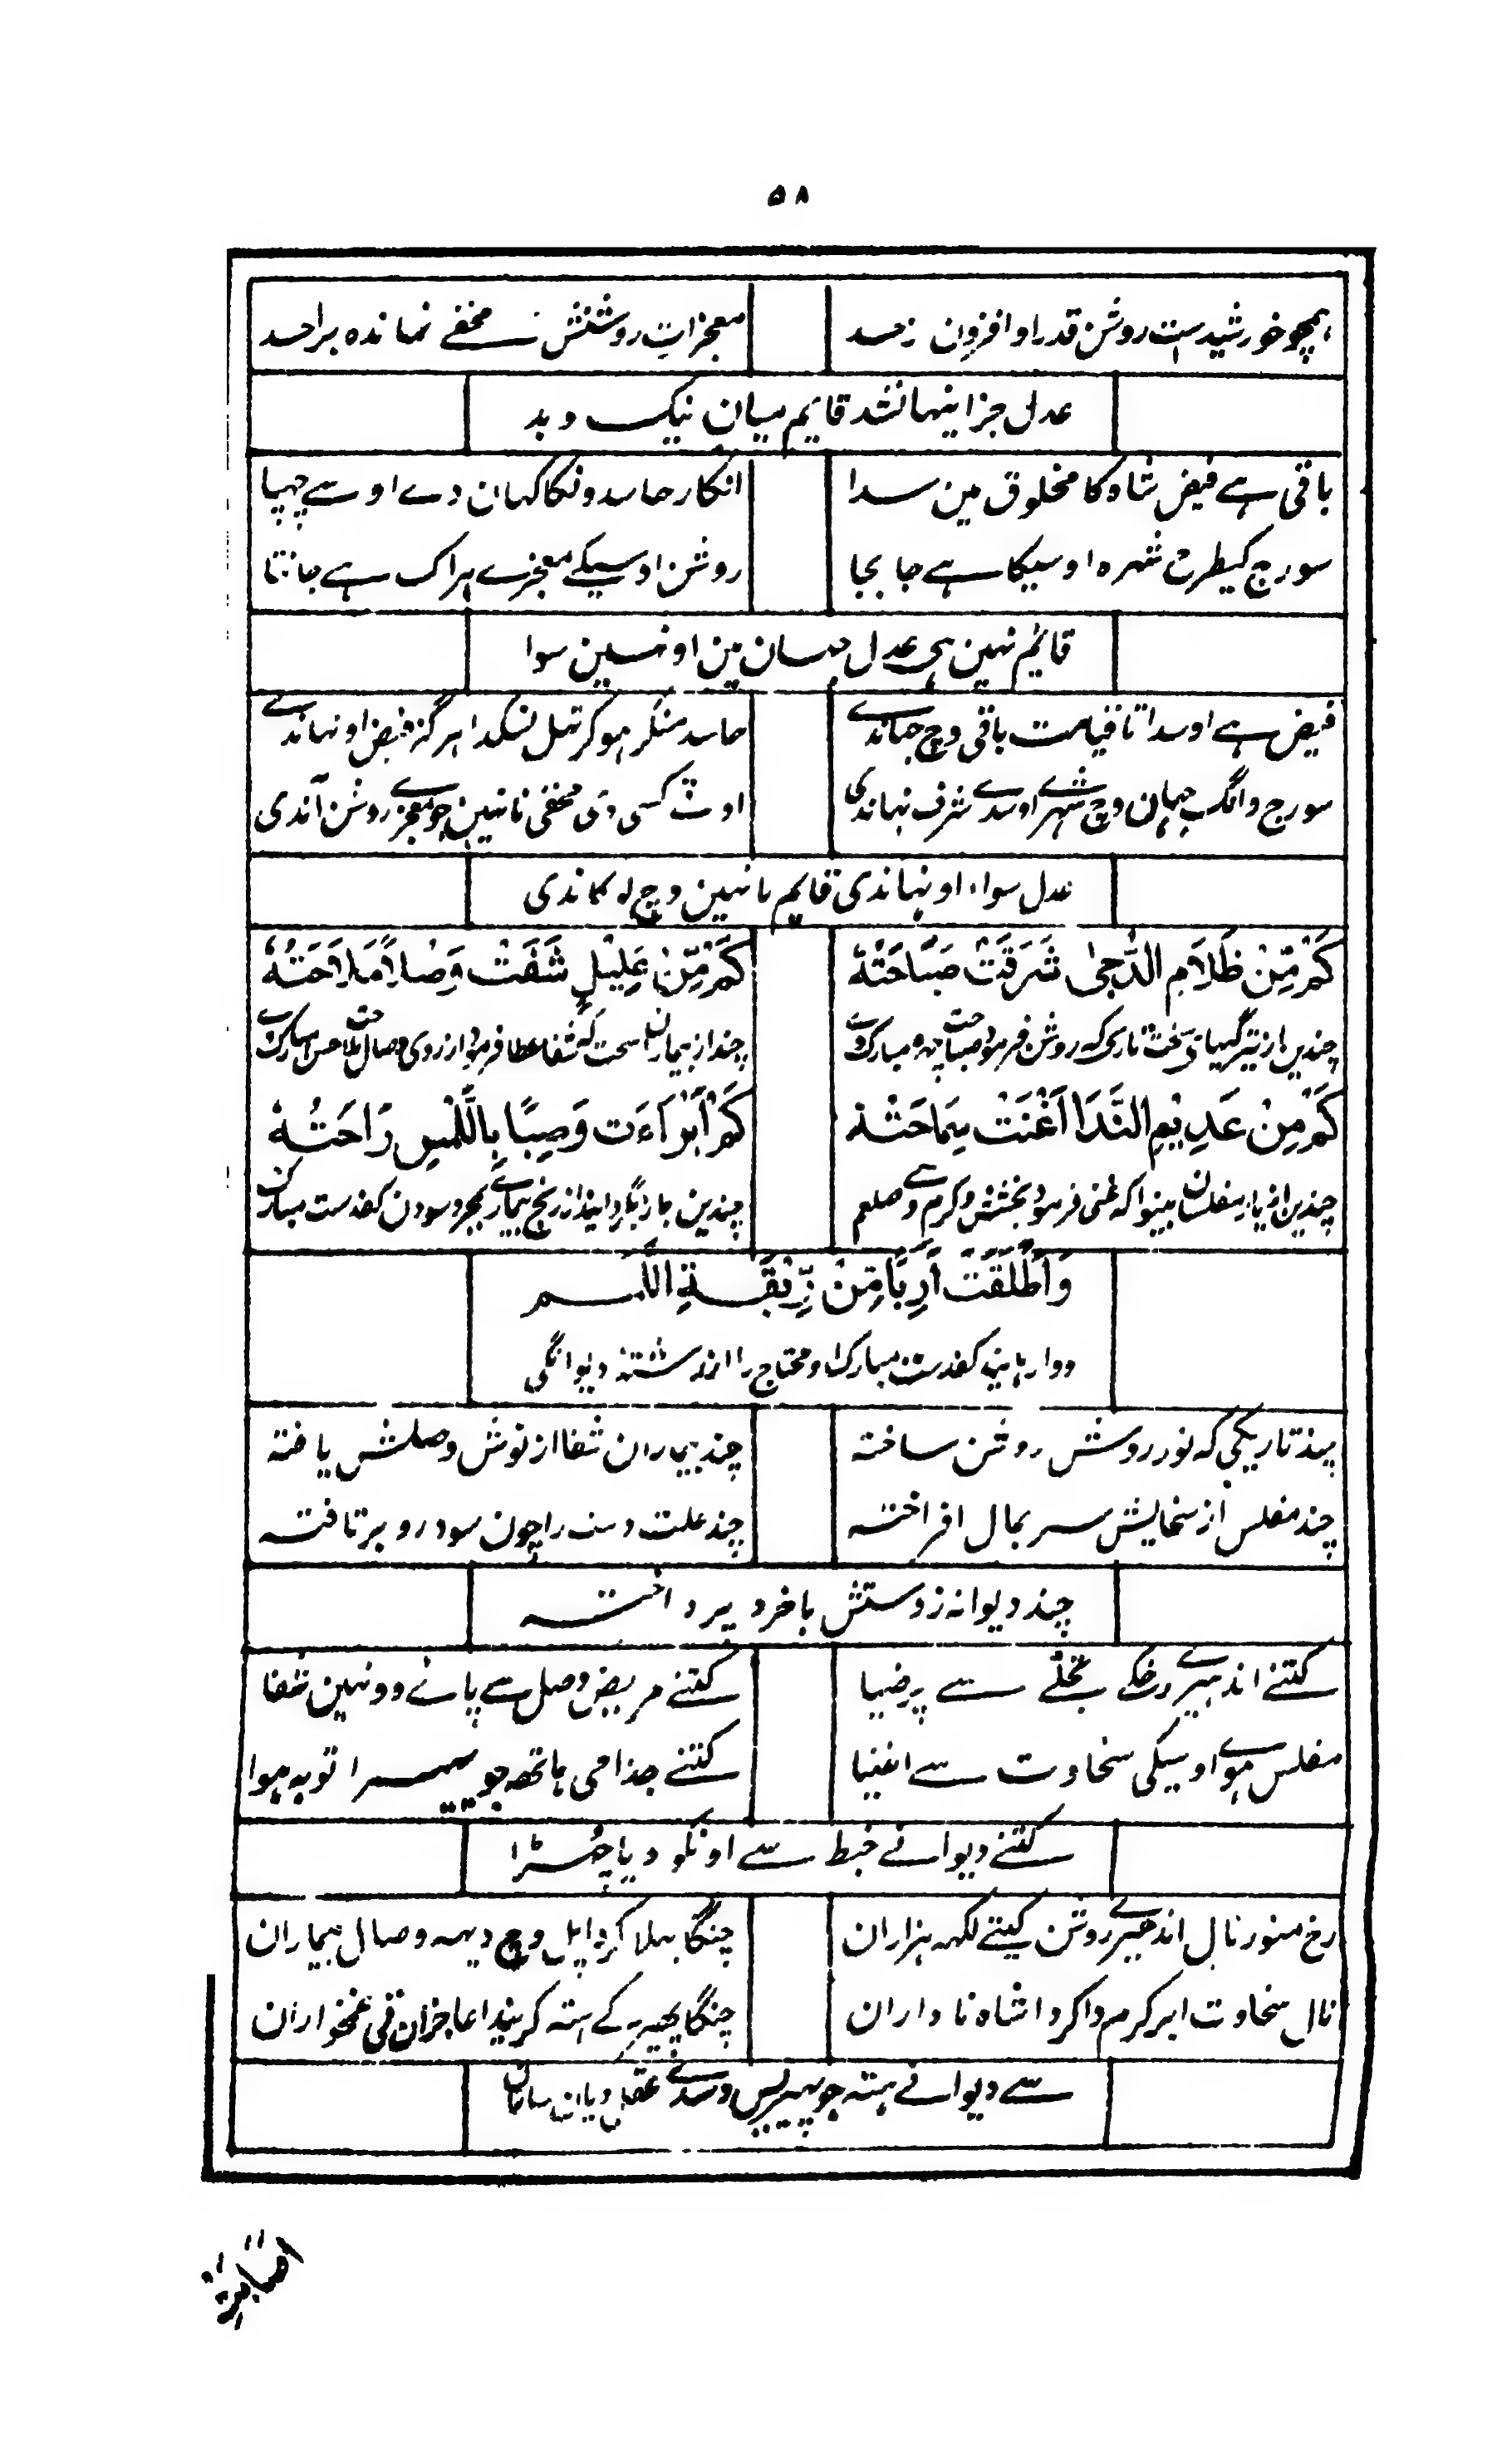 ۵۸
ہمچو خورشیدست روشن قدر او افزون زحد
معجزات روشنش مخفے نماندہ بر احد
عدل جز اینہا نشد قایم میان نیک و بد
باقی ہے فیض شاہ کا مخلوق مین سدا
انکار حاسدونکا کہان دے اوسے چہپا
سورج کیطرح شہرہ اوسیکا ہے جا بجا
روشن اوسیکے معجزے ہر اک ہے جانتا
قائم نہین ہی عدل جہان مین اونسین سوا
فیض ہے اوسدا تا قیامت باقی وچ جہاندے
حاسد منکر ہوکر ٹہل نسکدا ہرگز فیض اونہاندے
سورج وانگ جہان وچ شہرے اوسدے شرف نہاندی
کسی دی مخفی نانہین جو معجزے روشن آندی
عدل سواء اونہاندی قایم نانہین وچ
كَمْ مِّنْ ظَلَامِ الدُّجىٰ شَرَقَتْ صَبَاحَتُهٗ
كَمْ مِّنْ عَلِيْلٍ شَفَتْ وَصْلًا مَلَاحَتُهٗ
چندین از تیرگیہای سخت تاریک کہ روشن فرمود صباحت چہرہ مبارک وے
چند از بیماران سخت کہ شفا عطا فرمود از روی وصال ملاحت حسن مبارک وے
كَمْ مِنْ عَدِيْمِ النَّدَا اَغْنَتْ سِمَاحَتُهٗ
كَمْ اَبْرَاءَت وَصِبًا بِاللَّمْسِ رَاحَتُهٗ
چندین از مفلسان بینوا کہ غنی فرمود بخشش و کرم وے صلعم
چندین بار از رنج بیماری بمجرد سودن کفدست مبارک
وَاَطْلَقَتْ اَرِبًا مِّنْ رِّبْقَةِ اللَّمَمِ
کفدست مبارک او محتاج را از رشتہ دیوانگی
چند تاریکی کہ نور روش روشن ساختہ
چند بیماران شفا از نوش وصلش یافتہ
چند مفلس از سخایش سر بمال افراختہ
چند علت دست را چون سود رو برتافتہ
چند دیوانہ ز دستش با خرد پرداختہ
کتنے اندہیرے رخکی تجلّے سے پرضیا
کتنے مریض وصل سے پائے وونہین شفا
مفلس ہوے اوسیکی سخاوت سے اغنیا
کتنے جذامی ہاتھ جو پہیرا توبہ ہوا
کتنے دیوانے خبط سے اونکو دیا چُہڑا
رخ منور نال اندہیرے روشن کیتے لکہہ ہزاران
چنگا بہلا کردا پل وچ دیہہ وصال بیماران
نال سخاوت ابر کرم دا کردا شاہ ناداران
چنگا پہیر کے ہتہ کریندا عاجزان تی غمخواران
سے دیوانے ہتہ جو پہیریس